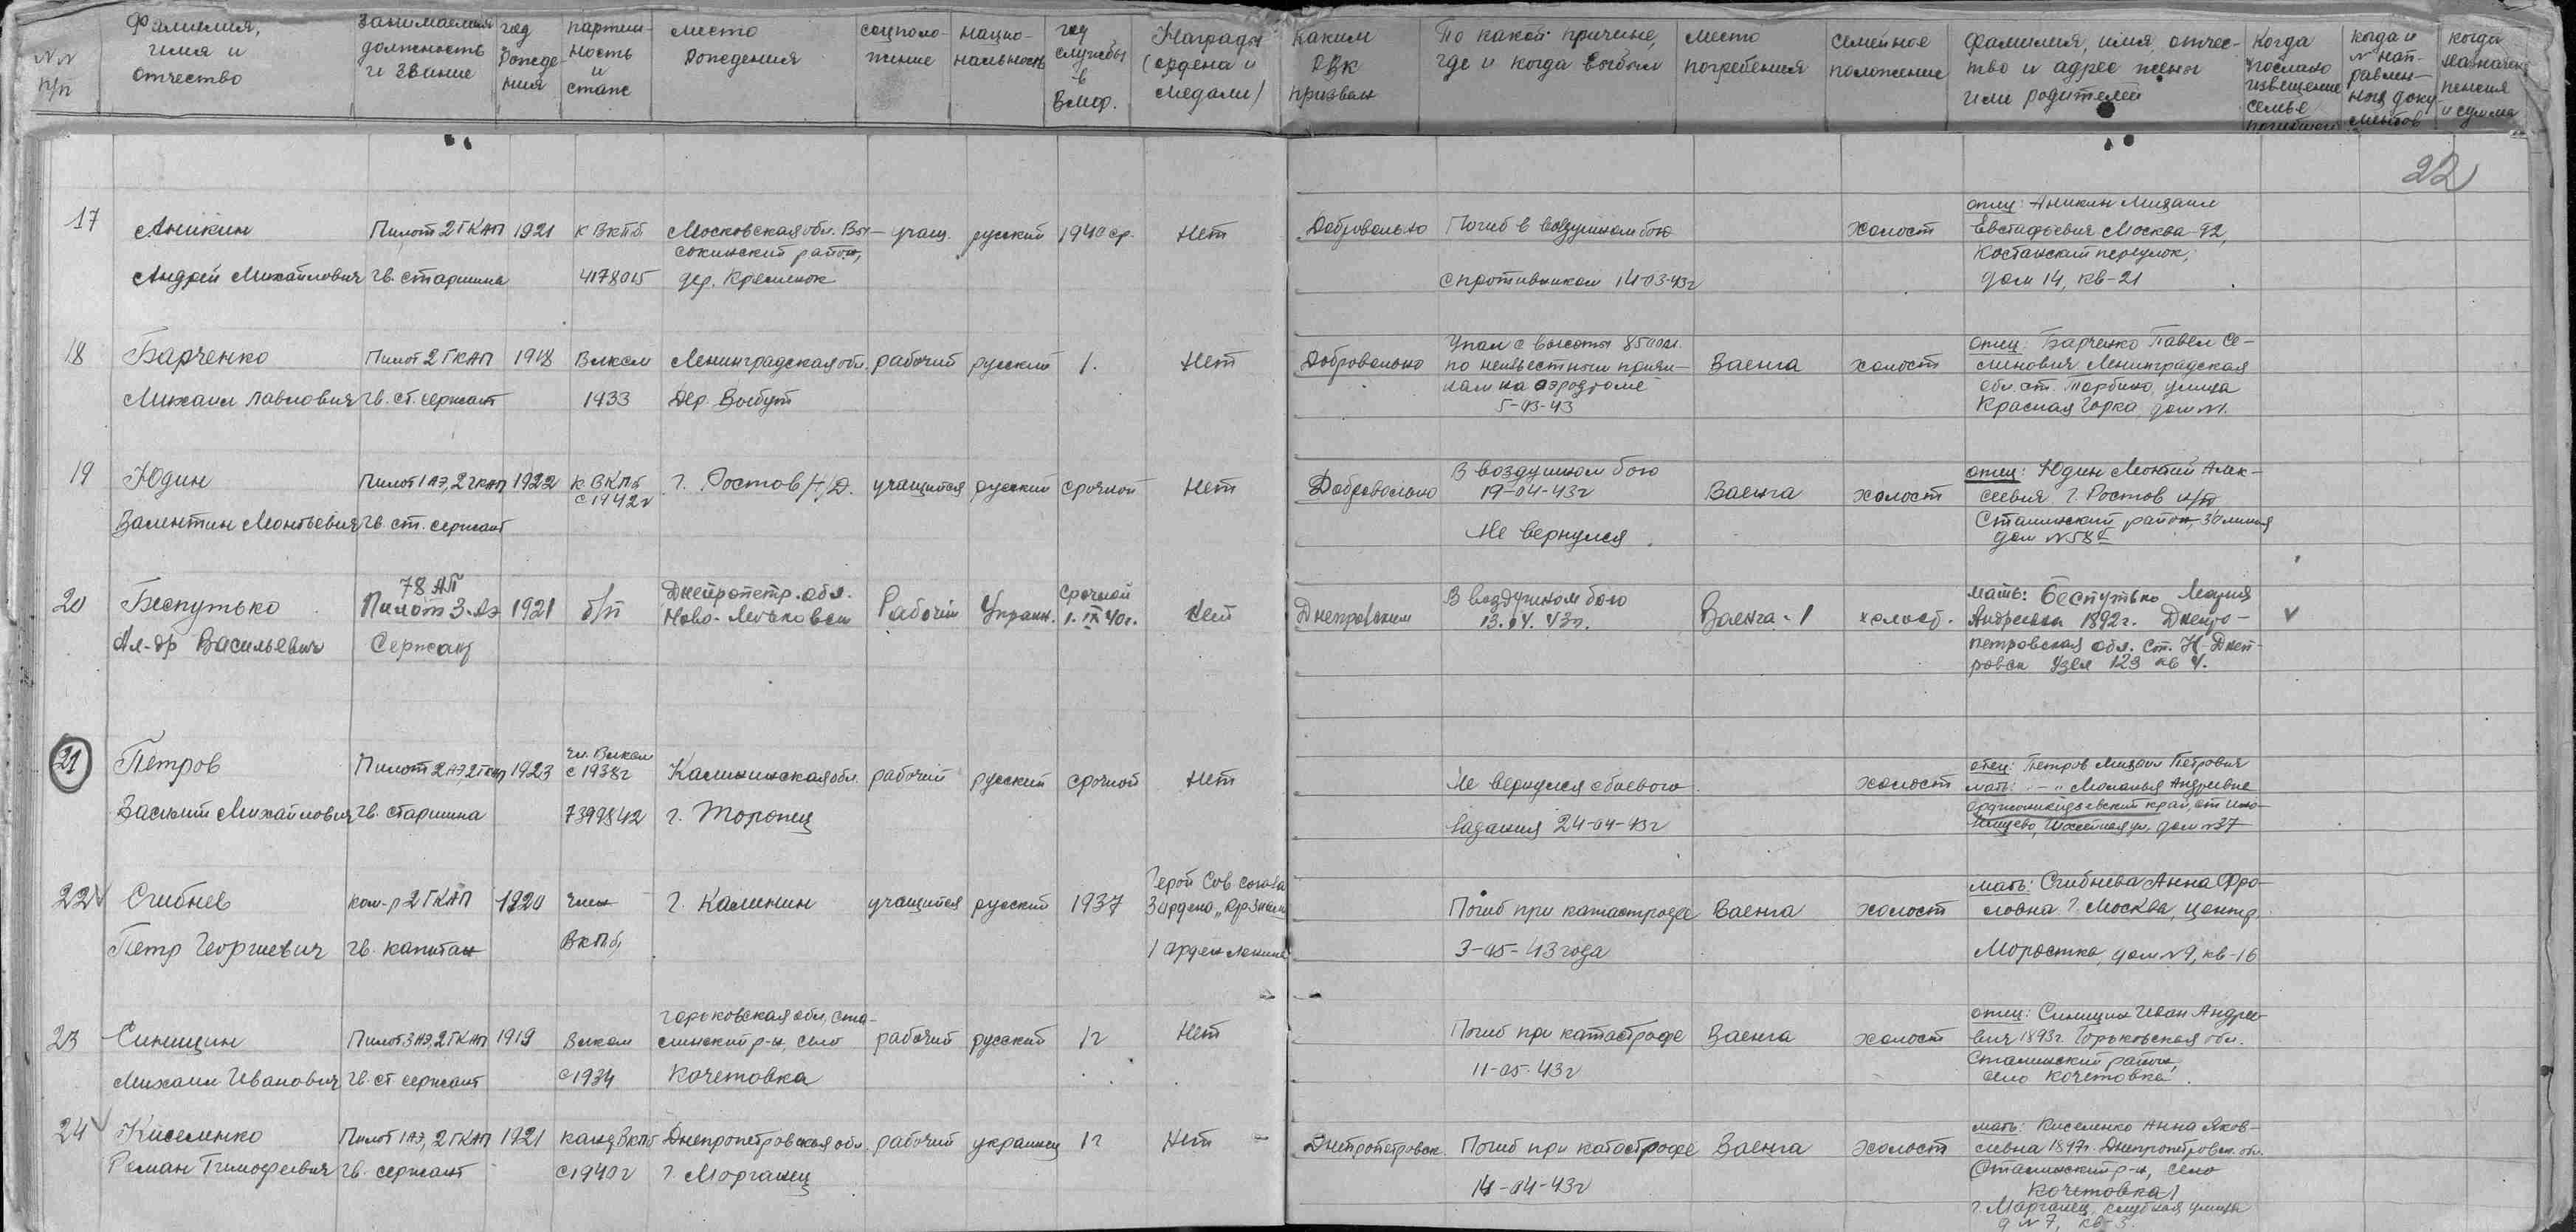 №№ п/п
Фамилия, имя и отчество
Занимаемая должность и звание
год рождения
партийность и стаж
место рождения
соцположение
национальность
год службы в ВМФ.
Награды (ордена и медали)
Каким РВК призван
По какой причине, где и когда выбыл
место погребения
семейное положение
Фамилия, имя, отчество и адрес жены или родителей
Когда послано извещение семье погибшего
когда и № направления документов
когда назначена пенсия и сумма
22
17
Аникин
Андрей Михайлович
Пилот 2 ГКАП
гв. старшина
1921
к ВКПб
4178015
Московская обл. Вы-
сокинский район,
дер. Кременок
учащ.
русский
1940 ср.
Нет
Добровольно
Погиб в воздушном бою
с противником 14-03-43г
холост
отец: Аникин Михаил
Евстафьевич Москва-92,
Костанский переулок,
дом 14, кв-21
18
Барченко
Михаил Павлович
Пилот 2 ГКАП
гв. ст. сержант
1918
Влксм
1933
Ленинградская обл.
Дер. Выбут
рабочий
русский
1.
Нет
Добровольно
Упал с высоты 8500м.
по неизвестным причи-
нам на аэродроме
5-03-43
Ваенга
холост
отец: Барченко Павел Се-
минович Ленинградская
обл. ст. Торбино, улица
Красная Горка, дом №1.
19
Юдин
Валентин Монтьевич
Пилот 1 АЭ, 2 ГКАП
гв. ст. сержант
1922
к ВКПб
с 1942г
г. Ростов Н/Д.
учащийся
русский
срочной
Нет
Добровольно
В воздушном бою
19-04-43г
Не вернулся
Ваенга
холост
отец: Юдин Монтий Алек-
сеевич г. Ростов н/Д
Сталинский район, линия
дом №58
20
Беспутько
Ал-др Васильевич
78 АП
Пилот 3-АЭ
Сержант
1921
б/п
Днепропетр. обл.
Ново-Московск
Рабочий
Украин.
Срочной
1.IX 40г.
Нет
Днепровским
В воздушном бою
13.04.43г.
Ваенга-1
холост.
мать: Беспутько Мария
Андреевна 1892г. Днепро-
петровская обл. ст. Н-Днеп-
ровск Узел 123 кв 4.
21
Петров
Василий Михайлович
Пилот 2 АЭ, 2 ГКАП
гв. старшина
1923
чл. Влксм
с 1938г
7399842
Калининская обл.
г. Торопец
рабочий
русский
срочной
Нет
Не вернулся с боевого
задания 24-04-43г
холост
отец: Петров Михаил Петрович
мать: -"- Меланья Андреевна
Орджоникидзевский край,
дом №37
22
Сгибнев
Петр Георгиевич
ком-р 2 ГКАП
гв. капитан
1920
член
ВКПб,
г. Калинин
учащийся
русский
1937
Герой Сов Союза
3 ордена „Кр. Знам
1 орден Ленина
Погиб при катастрофе
3-05-43 года
Ваенга
холост
мать: Сгибнева Анна Фро-
ловна г. Москва, центр.
дом №9, кв-16
23
Синицин
Михаил Иванович
Пилот 3 АЭ, 2 ГКАП
гв. ст. сержант
1919
Влксм
с 1934
Горьковская обл, Ста-
линский р-н, село
Кочетовка
рабочий
русский
1г
Нет
Погиб при катастрофе
11-05-43г
Ваенга
холост
отец: Синицин Иван Андрее-
вич 1893г. Горьковская обл.
Сталинский район,
село Кочетовка.
24
Киселенко
Роман Тимофеевич
Пилот 1 АЭ, 2 ГКАП
гв. сержант
1921
канд ВКПб
с 1940г
Днепропетровская обл
г. Морганец
рабочий
украинец
1г
Нет
Днепропетровск.
Погиб при катастрофе
14-04-43г
Ваенга
Холост
мать: Киселенко Анна Яков-
левна 1897г. Днепропетровск. обл.
(Сталинский р-н, село
Кочетовка)
г. Марганец, улица
д №7, кв-3.